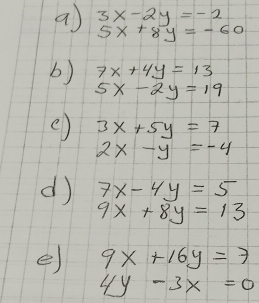 a) 3x-2y=-2
5x+8y=-60
b) 7x+4y=13
5x-2y=19
c) 3x+5y=7
2x-y=-4
d) 7x-4y=5
9x+8y=13
e) 9x+16y=7
4y-3x=0